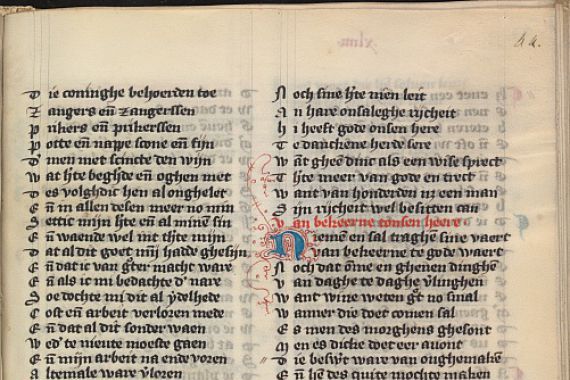 44.
xliiij
D ie coninghe behoerden toe
Z angers eñ zangerssen
P inkers eñ pinkerssen
P otte eñ nappe scone eñ fijn
D' men met scincte den wijn
W at h'te beghde eñ oghen met
D es volghdic hen al onghelet
E ñ in allen desen meer no min
S ettic mijn h'te eñ al minē sin
E ñ waende wel int h'te mijn
D at al dit goet mij hadde ghesijn
E ñ dat ic van g'ter macht ware
E ñ als ic mi bedachte d' nare
S oe dochte mi dit al ydelhede
C ost eñ arbeit verloren mede
E ñ dat al dit sonder waen
W ed' te nieute moeste gaen
E ñ mijn arbeit na ende voren
A ltemale ware v'loren
N och sine h'te nien leit
A n hare onsaleghe rijcheit
H i heeft gode onsen here
T e danckene herde sere
W āt gheē dinc als een wise sprect
T h'te meer van gode en trect
W ant van honderden .i. een man
S ijn rijcheit wel besitten can
V an bekeerne tonsen heere
N iemē en sal traghē sine vaert
V van bekeerne te gode waert
N och dat ōme en ghenen dinghē
V an daghe te daghe v'linghen
W ant wine weten g't no smal
W anner die doet comen sal
E s men des morghens ghesont
M en es dicke doet eer auont
D ie besijt ware van onghemake
E ñ hē des quite mochte maken